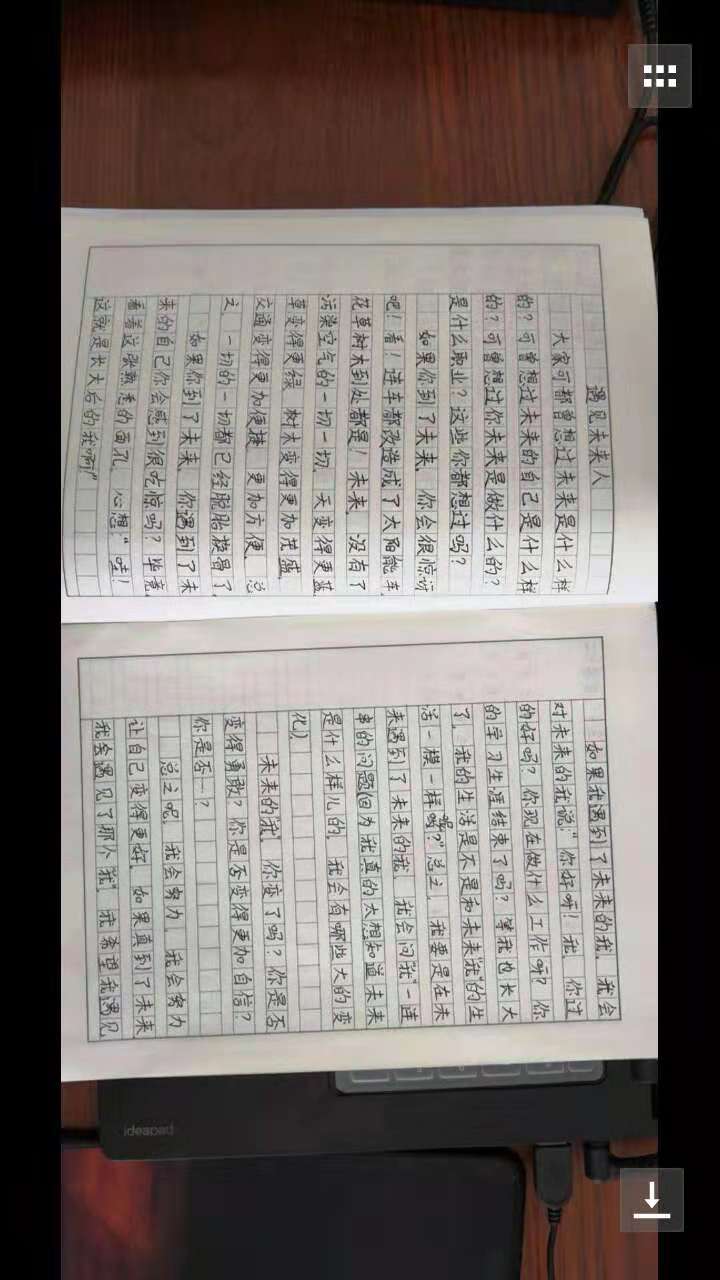 遇见未来人
大家可都曾想过未来是什么样
的？可曾想过未来的自己是什么样
的？可曾想过你未来是做什么的？
是什么职业？这些你都想过吗？
如果你到了未来，你会很惊讶
吧！看！连车都改造成了太阳能车，
花草树木到处都是！未来，没有了
污染空气的一切一切，天变得更蓝，
草变得更绿，树木变得更加茂盛，
交通变得更加便捷，更加方便，总
之，一切的一切都已经脱胎换骨了。
如果你到了未来，你遇到了未
来的自己你会感到很吃惊吗？毕竟，
看着这张熟悉的面孔，心想：“哇！
这就是长大后的我啊！”
如果我遇到了未来的我，我会
对未来的我说：“你好呀！我，你过
的好吗？你现在做什么工作呀？你
的学习生涯结束了吗？等我也长大
了，我的生活是不是和未来“我”的生
活一模一样呢？”总之，我要是在未
来遇到了未来的我，我会问“我”一连
串的问题因为我真的太想知道未来
是什么样儿的，我会有哪些大的变
化）
未来的“我”，你变了吗？你是否
变得勇敢？你是否变得更加自信？
你是否…？
总之呢，我会努力，我会努力
让自己变得更好，如果真到了未来
我会遇见了那个“我”，我希望我遇见
ideapad